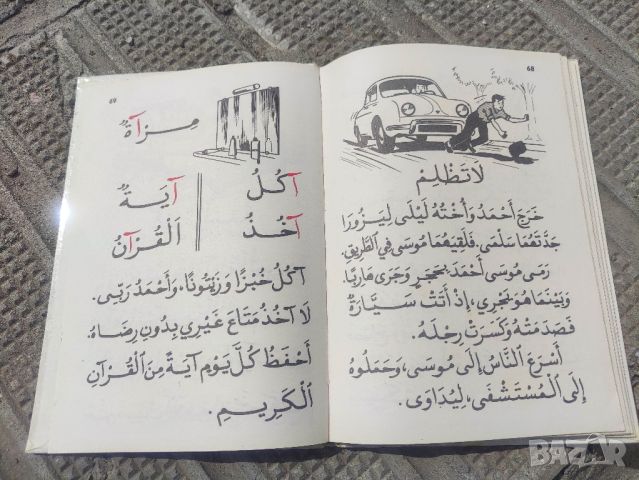 68
لَا تَظْلِمْ
خَرَجَ أَحْمَدُ وَأُخْتُهُ لَيْلَى لِيَزُورَا
جَدَّتَهُمَا سَلْمَى. فَلَقِيَهُمَا مُوسَى فِي الطَّرِيقِ.
رَمَى مُوسَى أَحْمَدَ بِحَجَرٍ وَجَرَى هَارِبًا.
وَبَيْنَمَا هُوَ يَجْرِي، إِذْ أَتَتْ سَيَّارَةٌ
فَصَدَمَتْهُ وَكَسَرَتْ رِجْلَهُ.
أَسْرَعَ النَّاسُ إِلَى مُوسَى، وَحَمَلُوهُ
إِلَى الْمُسْتَشْفَى، لِيُدَاوَى.
69
مِرْآةٌ
آكُلُ آيَةٌ
آخُذُ الْقُرْآنُ
آكُلُ خُبْزًا وَزَيْتُونًا، وَأَحْمَدُ رَبِّي.
لَا آخُذُ مَتَاعَ غَيْرِي بِدُونِ رِضَاهُ.
أَحْفَظُ كُلَّ يَوْمٍ آيَةً مِنَ الْقُرْآنِ
الْكَرِيمِ.
BAZAR